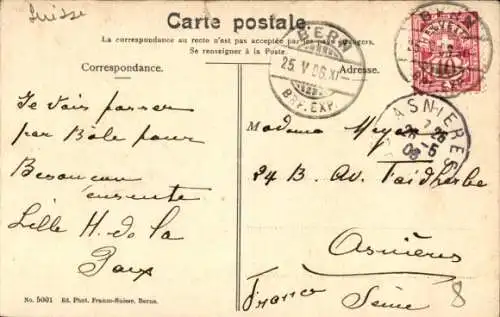 Suisse
Carte postale.
La correspondance au recto n'est pas acceptée par tous les pays étrangers.
Se renseigner à la Poste.
Correspondance.
Adresse.
BERN
25. V. 06. XI
BRF. EXP.
BERN
BRF. EXP.
HELVETIA
10
ASNIERES
7 25
26 -5
06
Je vais passer
par Bâle pour
Besançon
ensuite
Lille H. de la
Paux
Madame Meyer
24 B. Av. Faidherbe
Asnières
Seine
France
8
No. 5001 Ed. Phot. Franco-Suisse, Berne.